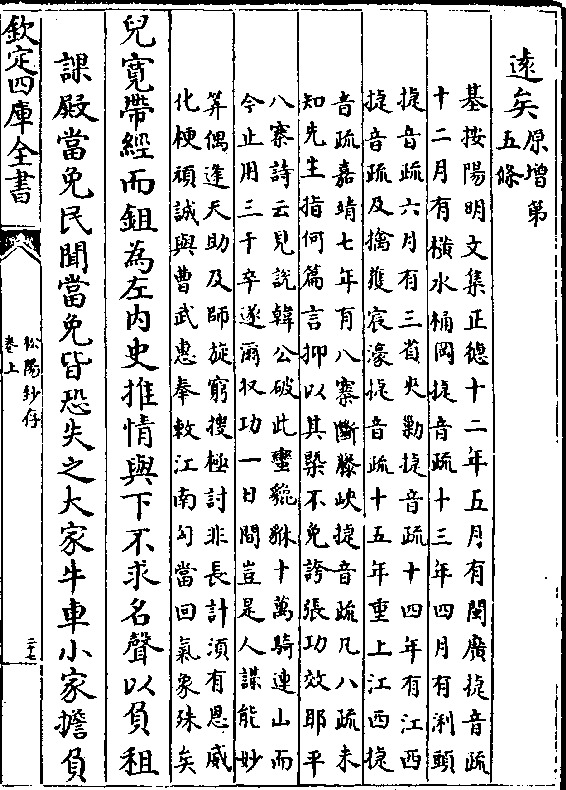 遠矣原增第五條
基按陽明文集正德十二年五月有閩廣捷音疏
十二月有橫水桶岡捷音疏十三年四月有浰頭
捷音疏六月有三省夾勦捷音疏十四年有江西
捷音疏及擒獲宸濠捷音疏十五年重上江西捷
音疏嘉靖七年有八寨斷藤峽捷音疏凡八疏未
知先生指何篇言抑以其槩不免誇張功效耶平
八寨詩云見說韓公破此蠻貔貅十萬騎連山而
今止用三千卒遂爾收功一日間豈是人謀能妙
筭偶逢天助及師旋窮搜極討非長計須有恩威
化梗頑誠與曹武惠奉敕江南勾當回氣象殊矣
兒寛帶經而鉏為左內史推情與下不求名聲以負租
課殿當免民聞當免皆恐失之大家牛車小家擔負
欽定四庫全書
松陽鈔存
卷上
二十七